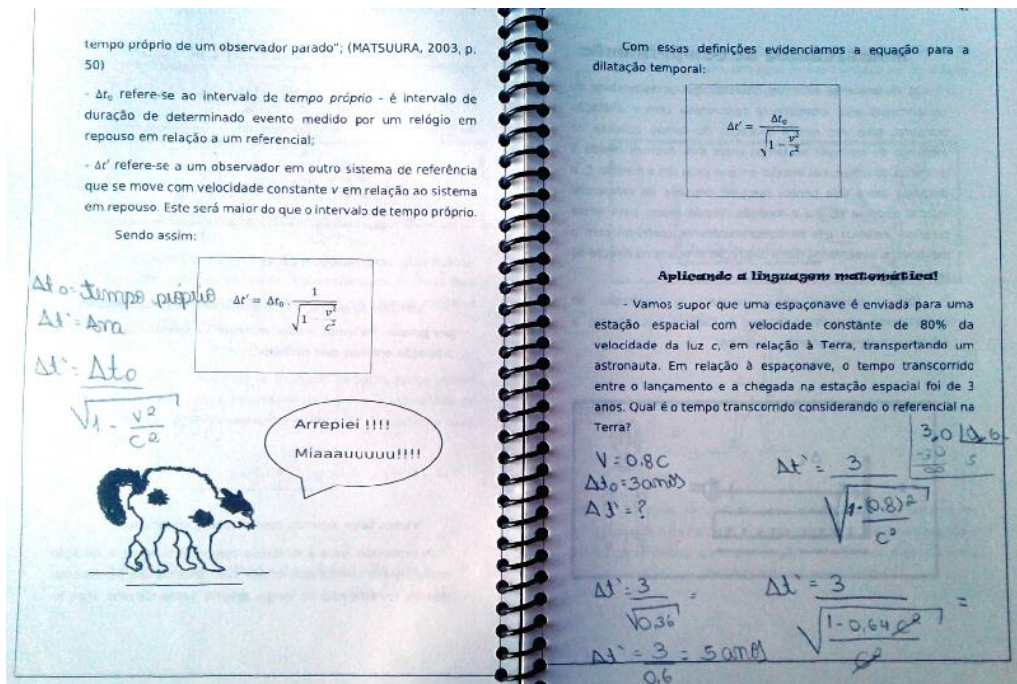 tempo próprio de um observador parado"; (MATSUURA, 2003, p.
50)
- Δt₀ refere-se ao intervalo de tempo próprio - é intervalo de
duração de determinado evento medido por um relógio em
repouso em relação a um referencial;
- Δt' refere-se a um observador em outro sistema de referência
que se move com velocidade constante v em relação ao sistema
em repouso. Este será maior do que o intervalo de tempo próprio.
Sendo assim:
Δt' = Δt₀ . 1 / √(1 - v²/c²)
Δt o = tempo próprio
Δt' = Ana
Δt' = Δto / √(1 - v²/c²)
Arrepiei !!!!
Miaaauuuuu!!!!
Com essas definições evidenciamos a equação para a
dilatação temporal:
Δt' = Δt₀ / √(1 - v²/c²)
Aplicando a linguagem matemática!
- Vamos supor que uma espaçonave é enviada para uma
estação espacial com velocidade constante de 80% da
velocidade da luz c, em relação à Terra, transportando um
astronauta. Em relação à espaçonave, o tempo transcorrido
entre o lançamento e a chegada na estação espacial foi de 3
anos. Qual é o tempo transcorrido considerando o referencial na
Terra?
3,0 | 0,6
-30 5
00
V = 0,8c
Δto = 3 anos
Δt' = ?
Δt' = 3 / √(1 - (0,8)²/c²)
Δt' = 3 / √(1 - 0,64 c²/c²) =
Δt' = 3 / √0,36 =
Δt' = 3 / 0,6 = 5 anos